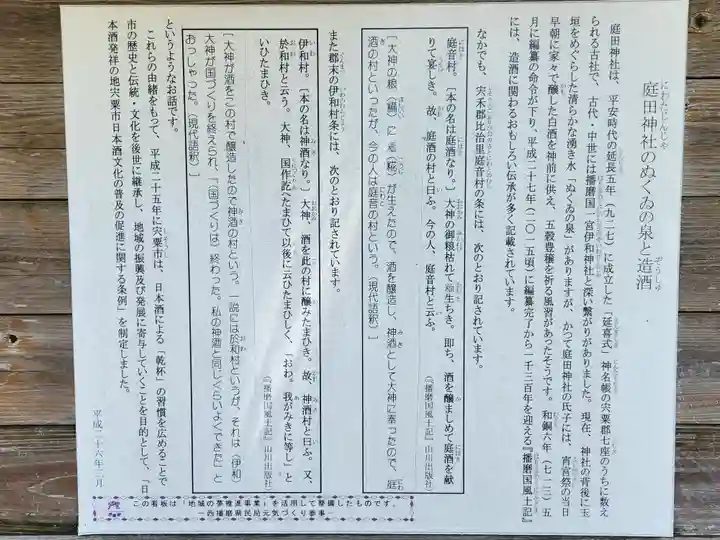 庭田神社のぬくゐの泉と造酒
庭田神社は、平安時代の延長五年(九二七)に成立した「延喜式」神名帳の宍粟郡七座のうちに数え
られる古社で、古代・中世には播磨国一宮伊和神社と深い繋がりがありました。現在、神社の背後に玉
垣をめぐらした清らかな湧き水「ぬくゐの泉」がありますが、かつて庭田神社の氏子には、宵宮祭の当日
早朝に家々で醸した白酒を神前に供え、五穀豊穣を祈る風習があったそうです。和銅六年(七一三)五
月に編纂の命令が下り、平成二十七年(二〇一五頃)に編纂完了から一千三百年を迎える『播磨国風土記』
には、造酒に関わるおもしろい伝承が多く記載されています。
なかでも、宍禾郡比治里庭音村の条には、次のとおり記されています。
庭音村。〔本の名は庭酒なり。〕大神の御粮枯れて生ちき。即ち、酒を醸ましめて庭酒を献
りて宴しき。故、庭酒の村と曰ふ。今の人、庭音村と云ふ。
(『播磨国風土記』山川出版社)
〔大神の粮(糒)に(こうじ)が生えたので、酒を醸造し、神酒として大神に奉ったので、庭
酒の村といったが、今の人は庭音の村という。(現代語訳)〕
また郡末の伊和村条には、次のとおり記されています。
伊和村。〔本の名は神酒なり。〕大神、酒を此の村に醸みたまひき。故、神酒村と曰ふ。又、
於和村と云う。大神、国作訖へたまひて以後に云ひたまひしく、「おわ。我がみきに等し」と
いひたまひき。
(『播磨国風土記』山川出版社)
〔大神が酒をこの村で醸造したので神酒の村という。一説には於和村というが、それは(伊和)
大神が国づくりを終えられ、「(国づくりは)終わった。私の神酒と同じぐらいよくできた」と
おっしゃった。(現代語訳)〕
というようなお話です。
これらの由緒をもって、平成二十五年に宍粟市は、日本酒による「乾杯」の習慣を広めることで
市の歴史と伝統・文化を後世に継承し、地域の振興及び発展に寄与していくことを目的として、「日
本酒発祥の地宍粟市日本酒文化の普及の促進に関する条例」を制定しました。
平成二十六年二月
この看板は「地域の夢推進事業」を活用して整備したものです。
―西播磨県民局元気づくり事業―